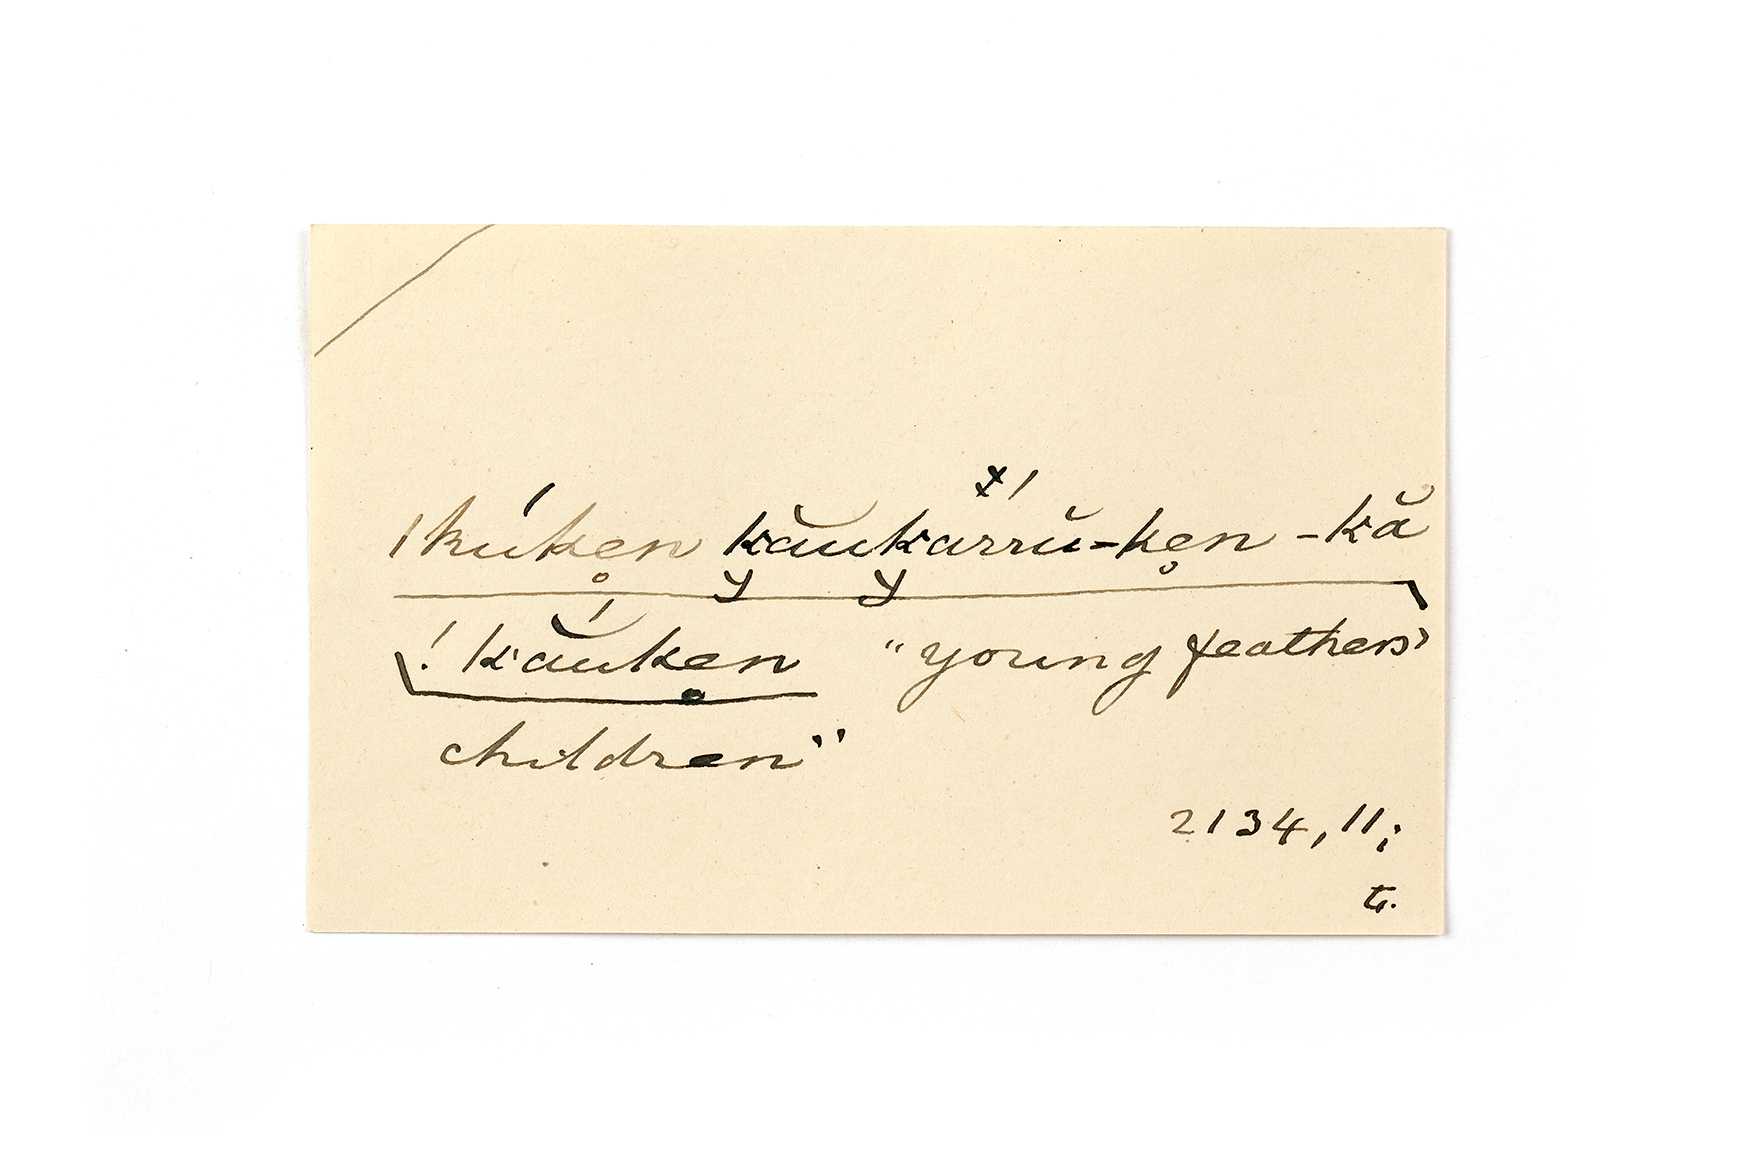 |kúken̥ k̆ăuk̆arrŭ-ken̥-kă
!kắuken̥ "young feathers'
children"
2134, 11;
G.